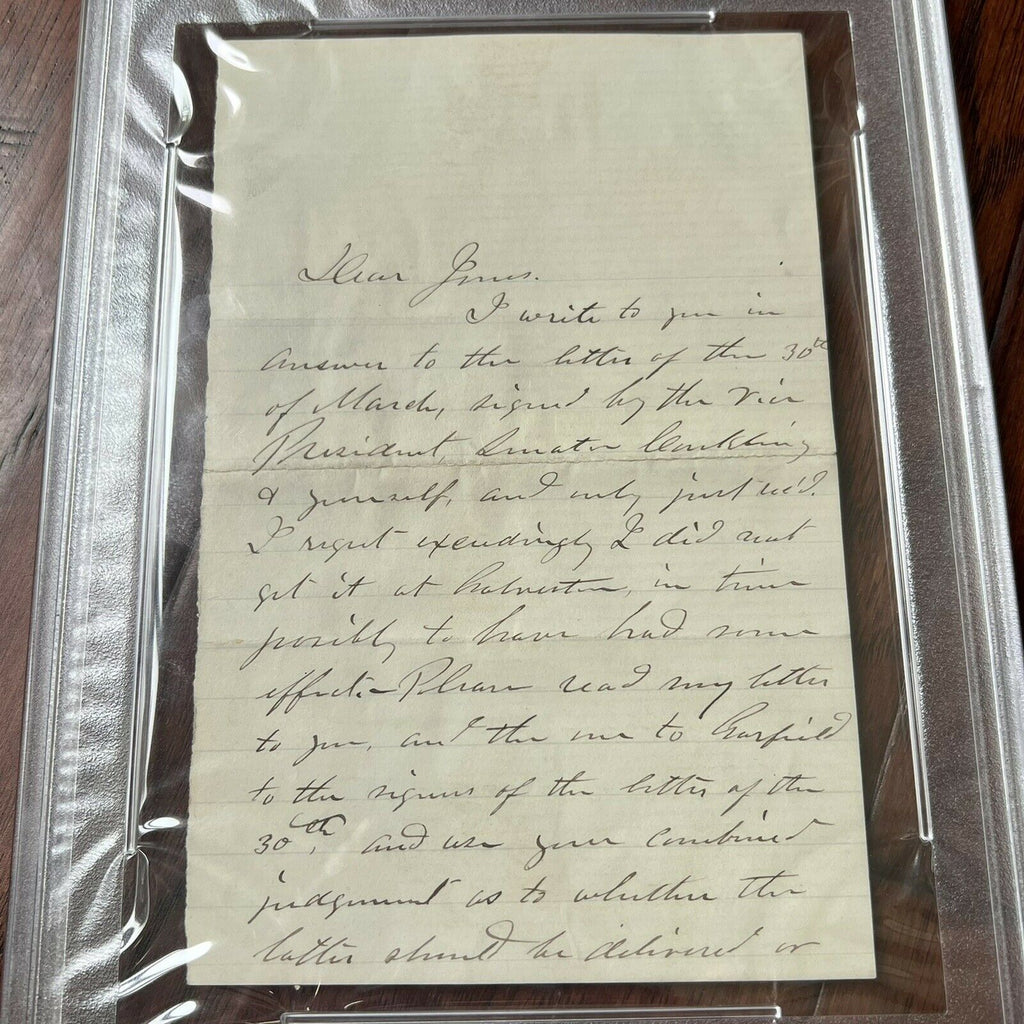 Dear Jones.
I write to you in
answer to the letter of the 30th
of March, signed by the Vice
President, Senator Conkling
& yourself, and only just rec'd.
I regret exceedingly I did not
get it at Galveston, in time
possibly to have had some
effect.— Please read my letter
to you, and the one to Garfield
to the signers of the letter of the
30th, and use your combined
judgment as to whether the
latter should be delivered or